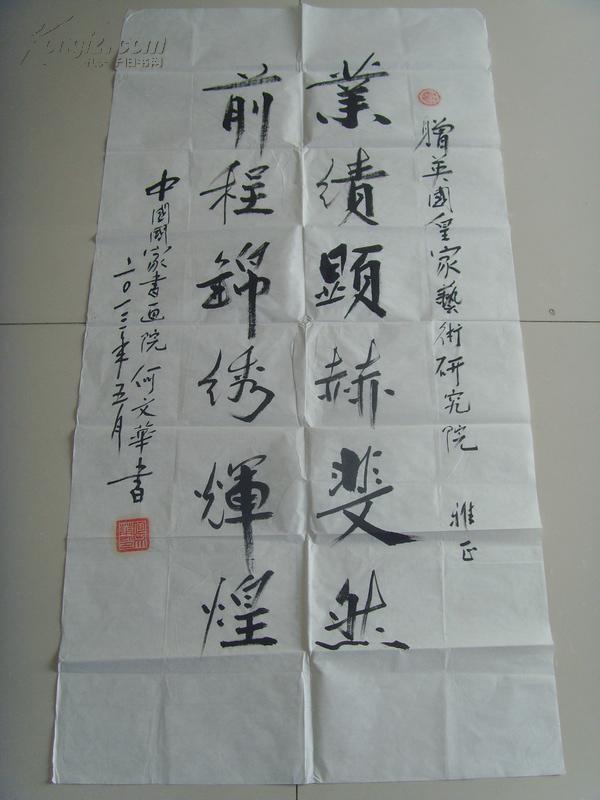 贈英國皇家藝術研究院 雅正
業績顕赫斐然
前程錦绣輝煌
中國國家書画院何文華書
二〇一三年五月
Kongfz.com
孔夫子旧书网